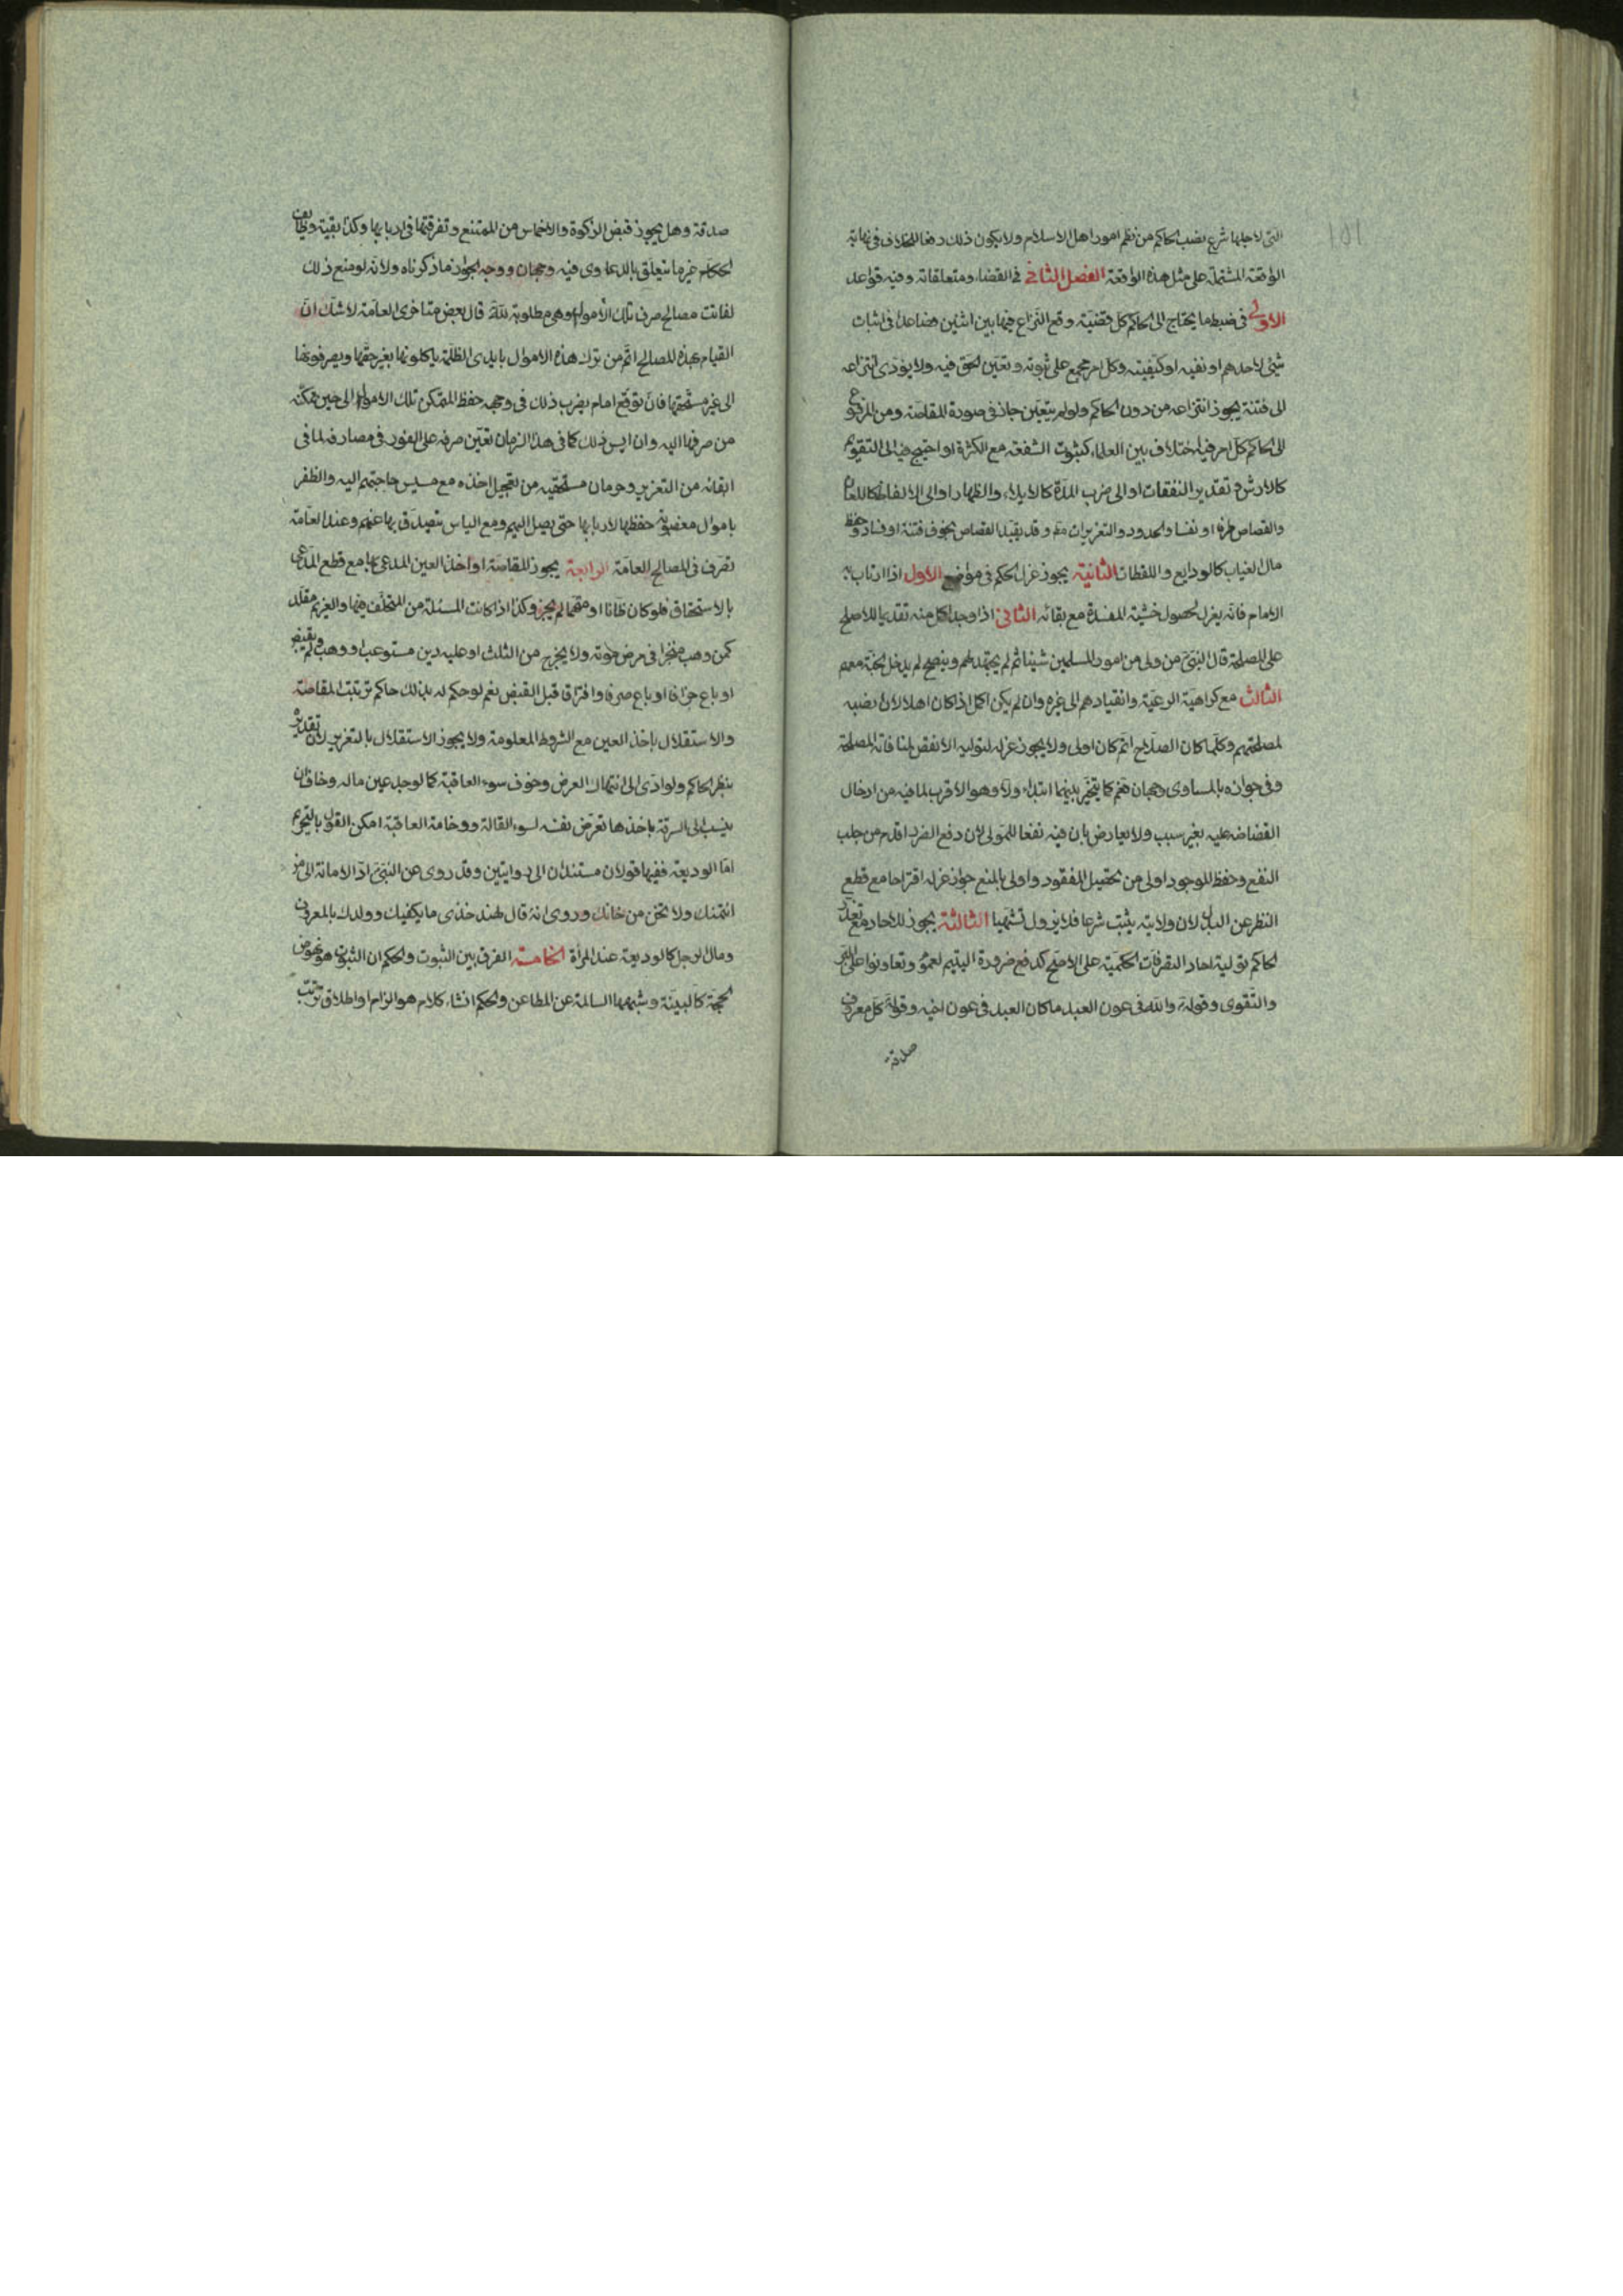 ١٥١
التى لاجلها شرع نصب الحاكم من نظم امور اهل الاسلام ولا يكون ذلك رفعا للخلاف فى نهاية
الواقعة المشتملة على مثل هذه الواقعة الفصل الثانى فى القضاء ومتعلقاته وفيه قواعد
الاولى فى ضبط ما يحتاج الى الحاكم كل قضية وقع النزاع فيها بين اثنين فصاعدا فى اثبات
شئ لاحدهم او نفيه او كيفيته وكل امر مجمع على ثبوته وتعين الحق فيه ولا يؤدى انتزاعه
الى فتنة يجوز انتزاعه من دون الحاكم ولو لم يتعين جاز فى صورة المقاصة ومن المرفوع
الى الحاكم كل امر فيه اختلاف بين العلماء كثبوت الشفعة مع الكثرة او احتيج فيه الى التقويم
كالارش وتقدير النفقات او الى ضرب المدة كالايلاء والظهار او الى الالفاظ كاللعان
والقصاص طرفا او نفسا والحدود والتعزيرات مط وقد يقيد القصاص بخوف فتنة او فساد وحفظ
مال الغياب كالودايع واللقطات الثانية يجوز عزل الحكم فى مواضع الاول اذا ارتاب به
الامام فانه يعزل لحصول خشية المفسدة مع بقائه الثانى اذا وجد اكمل منه تقديما للاصلح
على المصلحة قال النبى ص من ولى من امور المسلمين شيئا ثم لم يجتهد لهم وينصح لم يدخل الجنة معهم
الثالث مع كراهية الرعية وانقيادهم الى غيره وان لم يكن اكمل اذا كان اهلا لان نصبه
لمصلحتهم وكلما كان الصلاح اتم كان اولى ولا يجوز عزله لتولية الانقص لمنافاته المصلحة
وفى جوازه بالمساوى وجهان فنعم كما يتخير بينهما ابتداء ولا وهو الاقرب لما فيه من ادخال
الغضاضة عليه بغير سبب ولا يعارض بان فيه نفعا للمولى لان دفع الضرر اقدم من جلب
النفع وحفظ الموجود اولى من تحصيل المفقود واولى بالمنع جواز عزله اقتراحا مع قطع
النظر عن البدل لان ولايته يثبت شرعا فلا يزول تشهيا الثالثة يجوز للاحاد مع تعذر
الحاكم تولية احاد التصرفات الحكمية على الاصح كدفع ضرورة اليتيم لعموم وتعاونوا على البر
والتقوى وقوله والله فى عون العبد ما كان العبد فى عون اخيه وقوله كل معروف
صدقة
صدقة وهل يجوز قبض الزكوة والاخماس من الممتنع وتفرقتها فى اربابها وكذا بقية وظايف
الحكام غير ما يتعلق بالدعاوى فيه وجهان ووجه الجواز ما ذكرناه ولانه لو منع ذلك
لفاتت مصالح صرف تلك الاموال وهى مطلوبة لله قال بعض متاخرى العامة لا شك ان
القيام بهذه المصالح اتم من ترك هذه الاموال بايدى الظلمة ياكلونها بغير حقها ويصرفونها
الى غير مستحقها فان توقع امام يصرف ذلك فى وجهه حفظ المتمكن تلك الاموال الى حين تمكنه
من صرفها اليه وان ايس ذلك كما فى هذا الزمان تعين صرفه على الفور فى مصارفه لما فى
ابقائه من التغرير وحرمان مستحقيه من تعجيل اخذه مع مسيس حاجتهم اليه والظفر
باموال مغصوبة حفظها لاربابها حتى يصل اليهم ومع الياس يتصدق بها عنهم وعند العامة
تصرف فى المصالح العامة الرابعة يجوز للمقاصة او اخذ العين المدعى بها مع قطع المدعى
بالاستحقاق فلو كان ظانا او متهما لم يجز وكذا اذا كانت المسئلة من المختلف فيها والغريم مقلد
كمن وهب منجزا فى مرض موته ولا يخرج من الثلث او عليه دين مستوعب او وهب ولم يقبض
او باع جزافا او باع صرفا وافتراق قبل القبض نعم لو حكم له بذلك حاكم ترتبت المقاصة
والاستقلال باخذ العين مع الشروط المعلومة ولا يجوز الاستقلال بالتعزير لان تقديره
بنظر الحاكم ولو ادى الى انتهاك العرض وخوف سوء العاقبة كما لو وجد عين ماله وخاف ان
ينسب الى السرقة باخذها تعرض نفسه لسوء القالة ووخامة العاقبة امكن القول بالتحريم
اما الوديعة ففيها قولان مستندان الى روايتين وقد روى عن النبى ص اد الامانة الى من
ائتمنك ولا تخن من خانك وروى انه قال لهند خذى ما يكفيك وولدك بالمعروف
ومال الرجل كالوديعة عند المرأة الخامسة الفرق بين الثبوت والحكم ان الثبوت هو نهوض
الحجة كالبينة وشبهها السالمة عن المطاعن والحكم انشاء كلام هو الزام او اطلاق ترتب